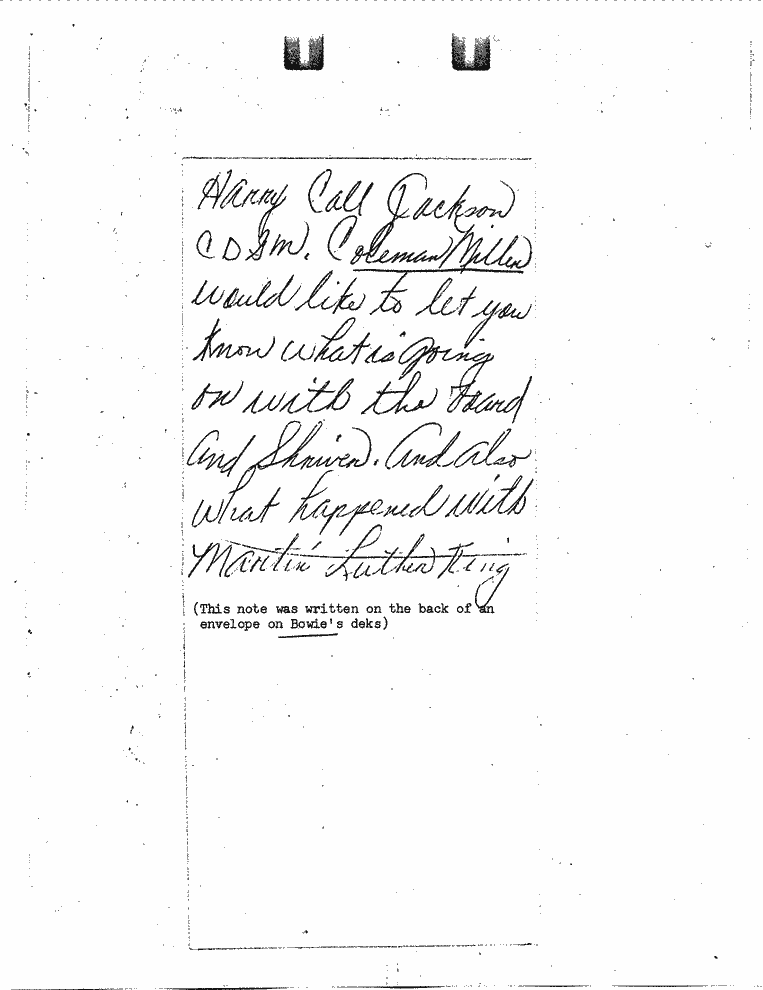 Harry Call Jackson
CDGM. Coleman Miller
would like to let you
know what is going
on with the board
and Shriver. And also
what happened with
Martin Luther King
(This note was written on the back of an
envelope on Bowie's deks)